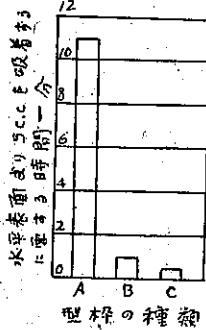 水平表面より5c.c.を吸着する
に要する時間—分
12
10
8
6
4
2
0
A B C
型枠の種類